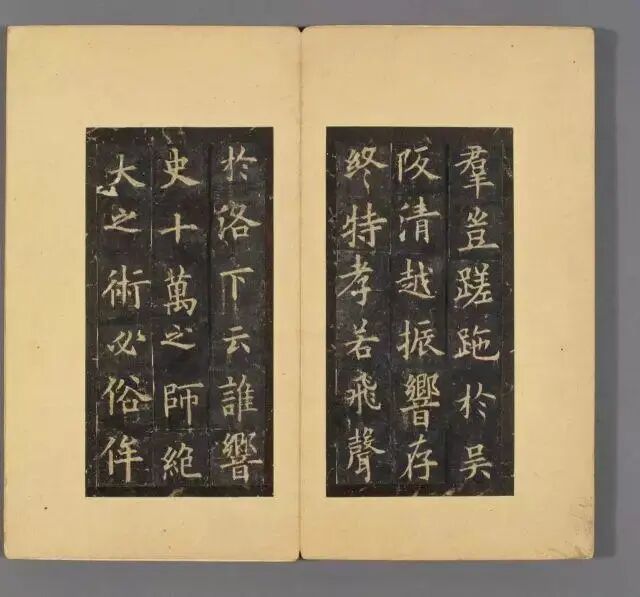 羣豈蹉跎於吴
阪清越振響存
终特孝若飛聲
於洛下云誰響
史十萬之師絶
大之術必俗侔